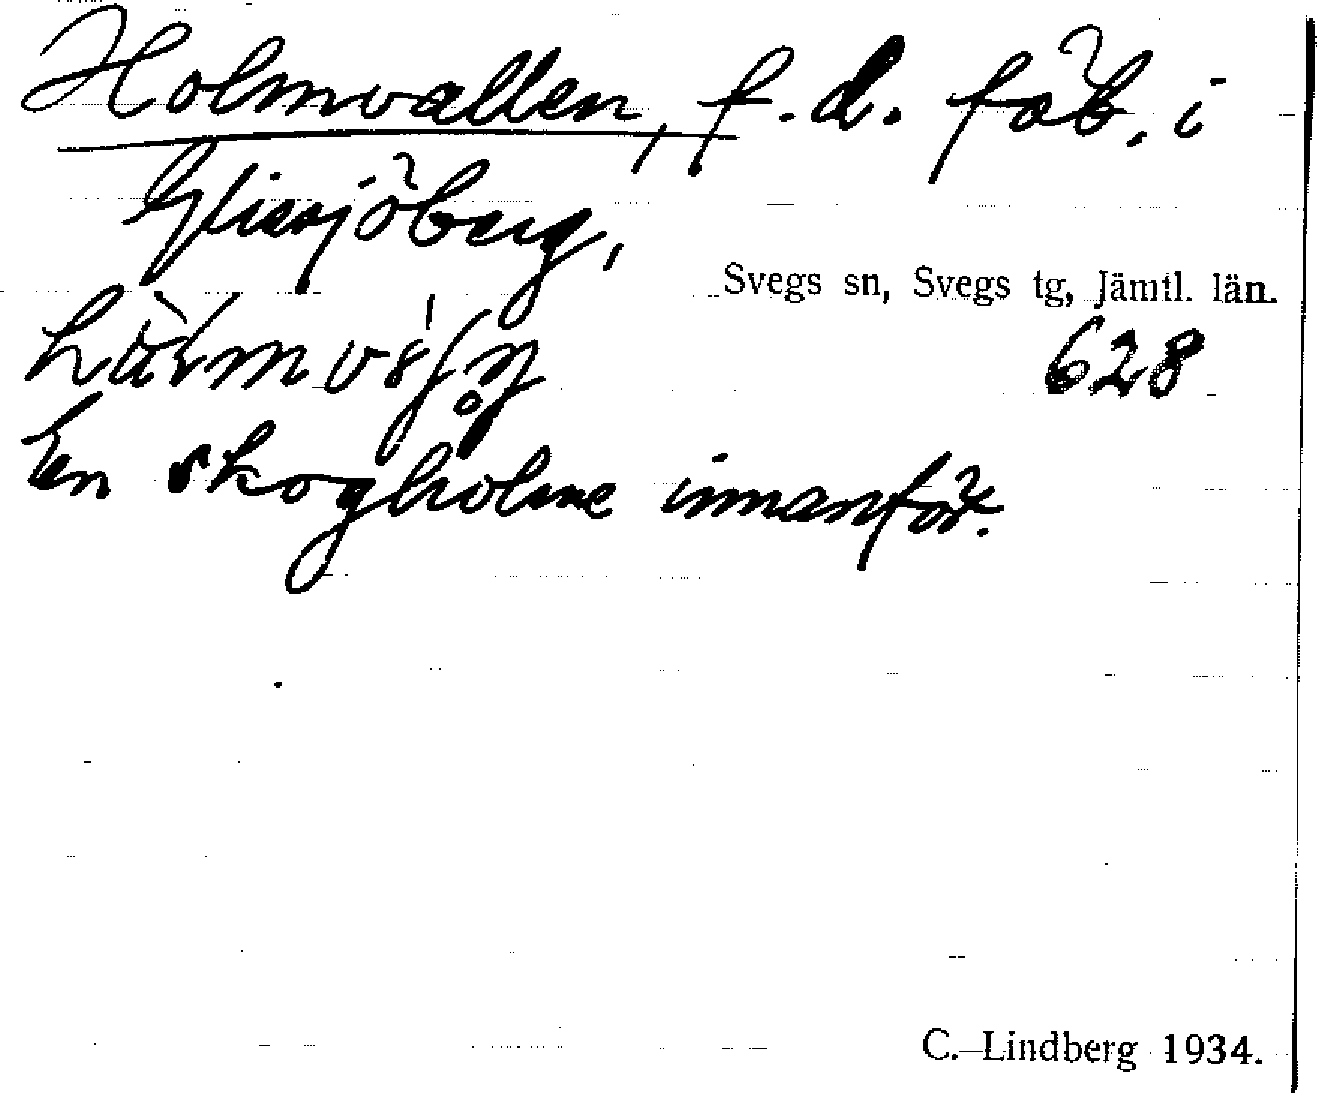 Holmvallen, f.d. fäb. i
Glissjöberg,
Svegs sn, Svegs tg, Jämtl. län.
628
En skogholme innanför.
C. Lindberg 1934.